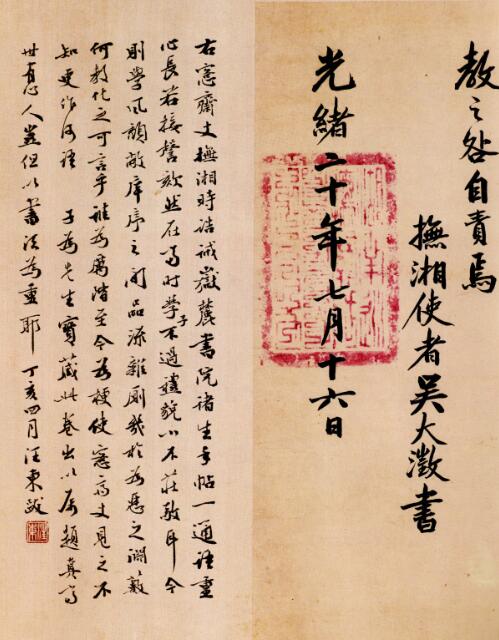 教之咎自責焉
撫湘使者吳大澂書
光緒二十年七月十六日
右愙齋丈撫湘時誥誡嶽麓書院諸生手帖一通語重
心長若接謦欬然在當時學子不過禮貌不莊敬耳今
則學風頹敝庠序之間品流雜廁幾於為慝之淵藪
何教化之可言乎誰為厲階至今為梗使愙齋丈見之不
知更作何語 子為先生寶藏此卷出以屬題真高
世真人豈但以書法為重耶 丁亥四月汪東跋